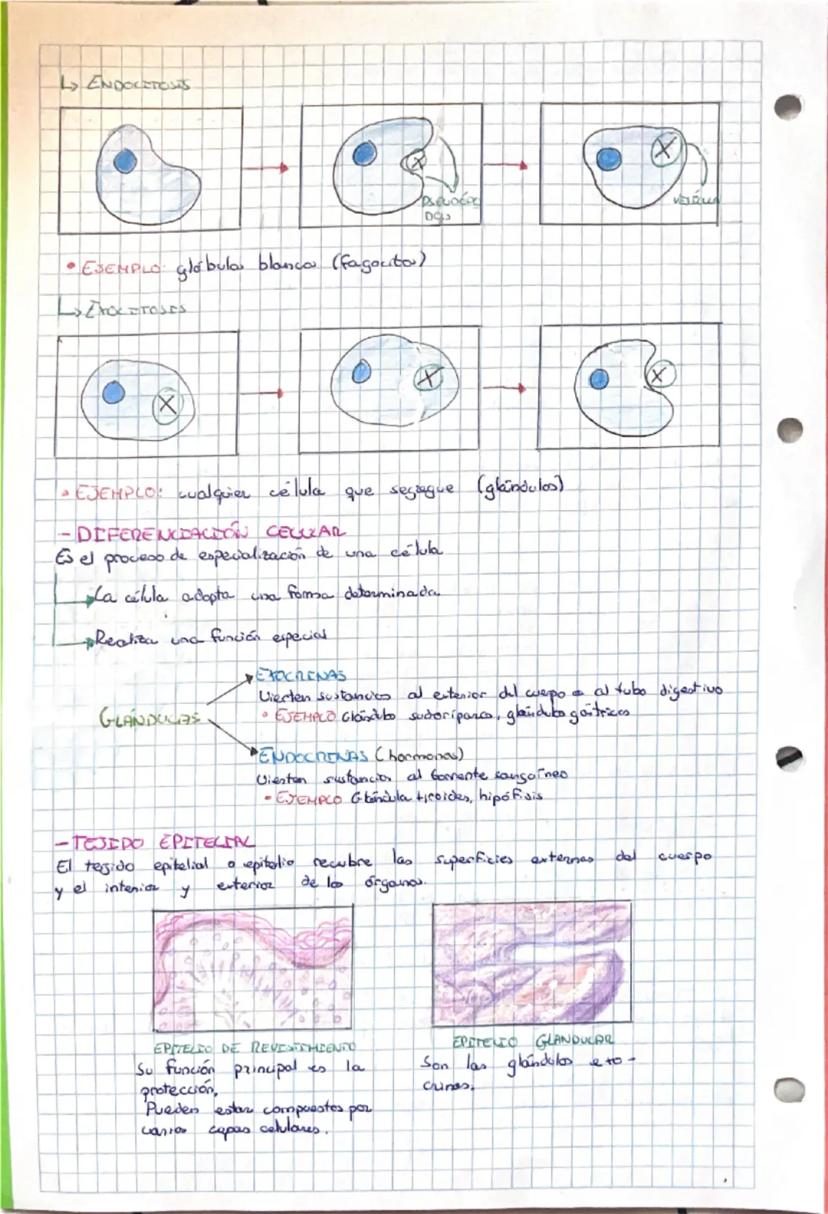 ↳ ENDOCITOSIS
PSEUDÓPO
DOS
VESÍCULA
• EJEMPLO: glóbulos blancos (fagocitos)
↳ EXOCITOSIS
• EJEMPLO: cualquier célula que segregue (glándulas)
- DIFERENCIACIÓN CELULAR
Es el proceso de especialización de una célula
La célula adopta una forma determinada
Realiza una función especial
EXOCRINAS
Vierten sustancias al exterior del cuerpo o al tubo digestivo
GLÁNDULAS
• EJEMPLO Glándulas sudoríparas, glándulas gástricas
ENDOCRINAS (hormonas)
Vierten sustancias al torrente sanguíneo
• EJEMPLO Glándula tiroides, hipófisis
- TEJIDO EPITELIAL
El tejido epitelial o epitelio recubre las superficies externas del cuerpo
y el interior y exterior de los órganos.
EPITELIO DE REVESTIMIENTO
Su función principal es la
protección.
Pueden estar compuestos por
varias capas celulares.
EPITELIO GLANDULAR
Son las glándulas exo-
crinas.